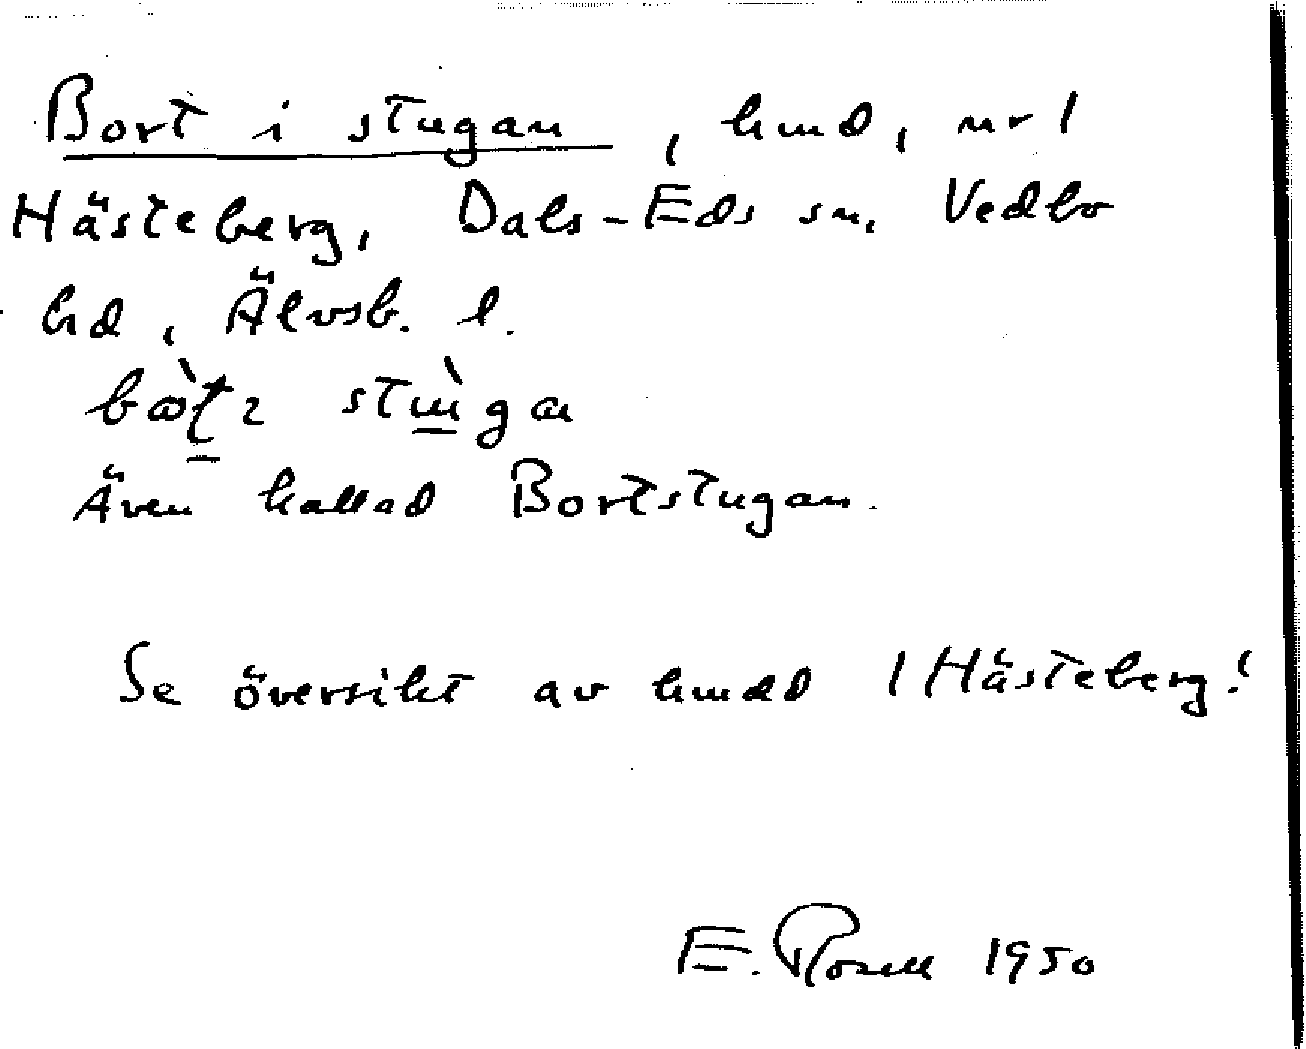 Bort i stugan, hmd, nr 1
Hästeberg, Dals-Eds sn, Vedbo
hd, Älvsb. l.
stùga
Även kallad Bortstugan.
Se översikt av hmdd 1 Hästeberg!
E. Rosell 1950